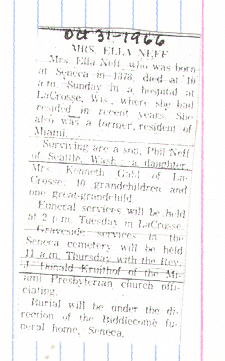 Oct 31-1966
MRS. ELLA NEFF
Mrs. Ella Neff, who was born
at Seneca in 1878, died at 10
a.m. Sunday in a hospital at
LaCrosse, Wis., where she had
resided in recent years. She
also was a former resident of
Miami.
Surviving are a son, Phil Neff
of Seattle, Wash., a daughter,
Mrs. Kenneth Gahl of La-
Crosse; 10 grandchildren and
one great-grandchild.
Funeral services will be held
at 2 p.m. Tuesday in LaCrosse.
Graveside services in the
Seneca cemetery will be held
11 a.m. Thursday with the Rev.
J. Donald Kruithof of the Mi-
ami Presbyterian church offi-
ciating.
Burial will be under the di-
rection of the Biddlecome fu-
neral home, Seneca.